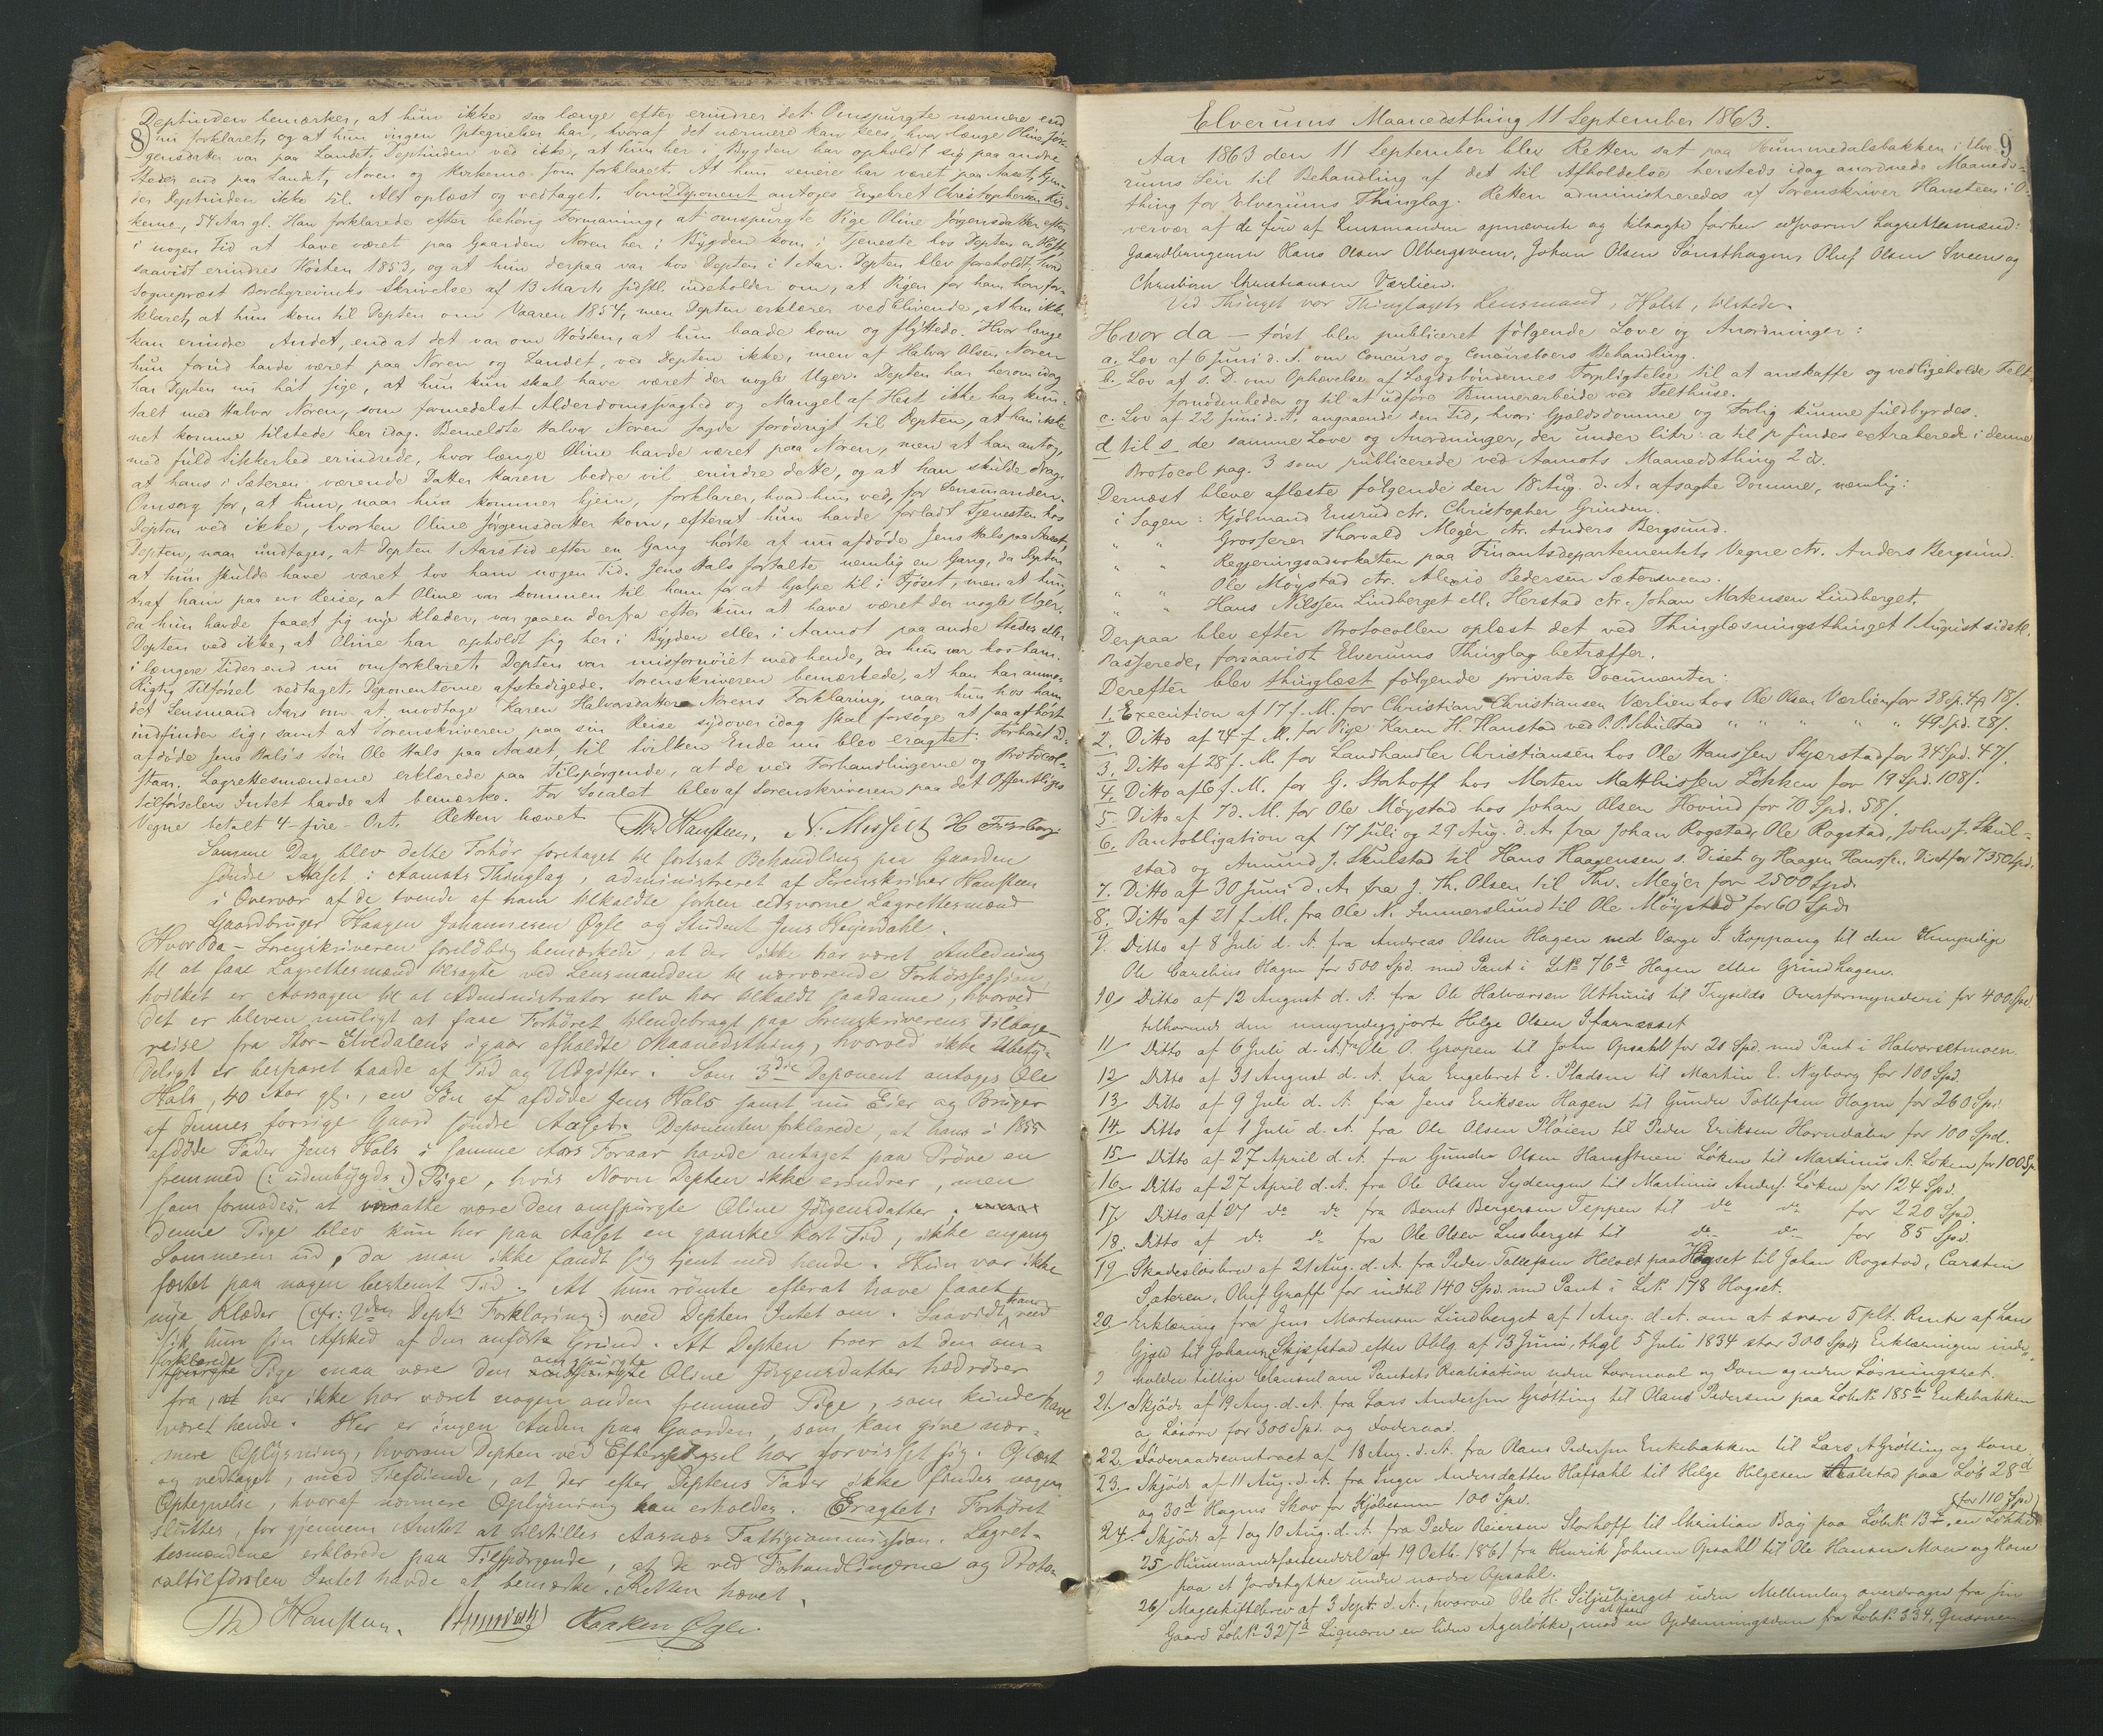 8
Deptinden bemærker, at hun ikke saa længe efter erindrer det Omspurgte nærmere end
nu forklaret, og at hun ingen Optegnelser har, hvoraf det nærmere kan sees, hvor længe Oline Jør-
gensdatter var paa Landet, Deptinden ved ikke, at hun her i Bygden har opholdt sig paa andre
Steder end paa Landet, Noren og Kirkerne som forklaret. At hun senere har været paa Aaset, kjen-
der Deptinden ikke til. Alt oplæst og vedtaget. Som 2 Deponent antoges Engebret Christophersen Kir-
kerne, 54 Aar gl. Han forklarede efter behørig Formaning, at omspurgte Pige Oline Jørgensdatter efter
i nogen Tid at have været paa Gaarden Noren her i Bygden kom i Tjeneste hos Depten
saavidt erindres Høsten 1853, og at hun derpaa var hos Depten i 1 Aar. Depten blev foreholdt, hvad
Sognepræst Borchgrevinks Skrivelse af 13 Marts sidstl. indeholder om, at Pigen for ham har for-
klaret, at hun kom til Depten om Vaaren 1854, men Depten erklærer vedblivende, at han ikke
kan erindre Andet, end at det var om Høsten, at hun baade kom og flyttede. Hvor længe
hun forud havde været paa Noren og Landet, ved Depten ikke, men af Halvor Olsen Noren
har Depten nu hørt sige, at hun kun skal have været der nogle Uger. Depten har herom idag
talt med Halvor Noren, som formedelst Alderdomssvaghed og Mangel af Hest ikke har kun-
net komme tilstede her idag. Bemeldte Halvor Noren sagde forøvrigt til Depten, at han ikke
med fuld Sikkerhed erindrede, hvor længe Oline havde været paa Noren, men at han antog,
at hans i Sæteren værende Datter Karen bedre vil erindre dette, og at han skulde drage
Omsorg for, at hun, naar hun kommer hjem, forklarer, hvad hun ved, for Lensmanden.
Depten ved ikke, hvorhen Oline Jørgensdatter kom, efterat hun havde forladt Tjenesten hos
Depten, naar undtages, at Depten 1 Aars Tid efter en Gang hørte af nu afdøde Jens Hals paa Aaset,
at hun skulde have været hos ham nogen Tid. Jens Hals fortalte nemlig en Gang, da Depten
traf ham paa en Reise, at Oline var kommen til ham for at hjælpe til i Fjøset, men at hun,
da hun havde faaet sig nye Klæder, var gaaen derfra efter kun at have været der nogle Uger.
Depten ved ikke, at Oline har opholdt sig her i Bygden eller i Aamot paa andre Steder eller
i længere Tider end nu omforklaret. Depten var misfornøiet med hende, da hun var hos ham.
Rigtig Tilførsel vedtaget. Deponenterne afskedigede. Sorenskriveren bemærkede, at han har anmo-
det Lensmand Aars om at modtage Karen Halvorsdatter Norens Forklaring, naar hun hos ham
indfinder sig, samt at Sorenskriveren paa sin Reise sydover idag skal forsøge at faa afhørt
afdøde Jens Hals's Søn Ole Hals paa Aaset, til hvilken Ende nu blev eragtet: Forhøret ud-
staar. Lagrettesmændene erklærede paa Tilspørgende, at de ved Forhandlingerne og Protocol-
tilførselen Intet havde at bemærke. For Localet blev af Sorenskriveren paa det Offentliges
Vegne betalt 4 – fire – Ort. Retten hævet
Th. Hansteen, N. Misselt H
Samme Dag blev dette Forhør foretaget til fortsat Behandling paa Gaarden
søndre Aaset i Aamots Thinglag, administreret af Sorenskriver Hansteen
i Overvær af de tvende af ham tilkaldte forhen edsvorne Lagrettesmænd
Gaardbruger Haagen Johannesen Øgle og Student Jens Heyerdahl.
Hvor da – Sorenskriveren foreløbig bemærkede, at der ikke har været Anledning
til at faae Lagrettesmænd tilsagte ved Lensmanden til nærværende Forhørssession,
hvilket er Aarsagen til at Administrator selv har tilkaldt saadanne, hvorved
det er bleven muligt at faae Forhøret tilendebragt paa Sorenskriverens Tilbage-
reise fra Stor-Elvedalens igaar afholdte Maanedsthing, hvorved ikke ubety-
deligt er besparet baade af Tid og Udgifter. Som 3die Deponent antoges Ole
Hals, 40 Aar gl., en Søn af afdøde Jens Hals samt nu Eier og Bruger
af dennes forrige Gaard søndre Aaset. Deponenten forklarede, at hans i 1855
afdøde Fader Jens Hals i samme Aars Foraar havde antaget paa Prøve en
fremmed (: udenbygds :) Pige, hvis Navn Depten ikke erindrer, men
som formodes at maatte være den omspurgte Oline Jørgensdatter.
Denne Pige blev kun her paa Aaset en ganske kort Tid, ikke engang
Sommeren ud, da man ikke fandt sig tjent med hende. Hun var ikke
fæstet paa nogen bestemt Tid. At hun rømte efterat have faaet
nye Klæder (cfr: 2den Depts Forklaring :) veed Depten Intet om. Saavidt han veed
fik hun sin Afsked af den anførte Grund. At Depten troer at den om-
forklarede Pige maa være den omspurgte Oline Jørgensdatter hidrører
fra, at her ikke har været nogen anden fremmed Pige, som kunde have
været hende. Her er ingen Anden paa Gaarden, som kan give nær-
mere Oplysning, hvorom Depten ved Efterspørgsel har forvisset sig. Oplæst
og vedtaget, med Tilføiende, at der efter Deptens Fader ikke findes nogen
Optegnelse, hvoraf nærmere Oplysning kan erholdes. Eragtet: Forhøret
sluttes, for gjennem Amtet at tilstilles Aasnæs Fattigcommission. Lagret-
tesmændene erklærede paa Tilspørgende, at de ved Forhandlingerne og Proto-
coltilførslen Intet havde at bemærke. Retten hævet.
Th Hansteen. Haaken Øgle.
9
Elverums Maanedsthing 11 September 1863.
Aar 1863 den 11 September blev Retten sat paa Hummedalsbakken i Elve-
rums Leir til Behandling af det til Afholdelse hersteds idag anordnede Maaneds-
thing for Elverums Thinglag. Retten administreredes af Sorenskriver Hansteen i O-
vervær af de fire af Lensmanden opnævnte og tilsagte forhen edsvorne Lagrettesmænd:
Gaardbrugerne Hans Olsen Olbergsveen, Johan Olsen Sønsthagen, Oluf Olsen Sveen og
Christian Christiansen Værlien.
Ved Thinget var Thinglagets Lensmand, Holst, tilstede.
Hvor da – først blev publiceret følgende Love og Anordninger:
a. Lov af 6 Juni d. A. om Concurs og Concursboers Behandling.
b. Lov af s. D. om Ophævelse af Lægdsbøndernes Forpligtelse til at anskaffe og vedligeholde Felt-
fornødenheder og til at udføre Tømmerarbeide ved Telthuse.
c. Lov af 22 Juni d. A. angaaende den Tid, hvori Gjældsdomme og Forlig kunne fuldbyrdes.
d til s de samme Love og Anordninger, der under litr: a til p findes extraherede i denne
Protocol pag. 3 som publicerede ved Aamots Maanedsthing 2 ds.
Dernæst bleve aflæste følgende den 18 Aug. d. A. afsagte Domme, nemlig:
i Sagen: Kjøbmand Ensrud ctr. Christopher Grinden.
" " Grosserer Thorvald Meyer ctr. Anders Bergsund.
" " Regjeringsadvokaten paa Finantsdepartementets Vegne ctr. Anders Bergsund.
" " Ole Møystad ctr. Alexis Pedersen Sætersveen.
" " Hans Nilssen Lindberget ell. Herstad ctr. Johan Matensen Lindberget.
Derpaa blev efter Protocollen oplæst det ved Thinglæsningsthinget 1 August sidstl.
Passerede, forsaavidt Elverums Thinglag betræffer.
Derefter blev thinglæst følgende private Documenter:
1. Execution af 17 f. M. for Christian Christiansen Værlien hos Ole Olsen Værlien for 38 Sp. 4 18/.
2. Ditto af 24 f. M. for Pige Karen H. Hanstad ved P. P. Schulstad " " " " " 49 Spd. 28/.
3. Ditto af 28 f. M. for Landhandler Christiansen hos Ole Hanssen Skjærstad for 34 Spd. 47/.
4. Ditto af 6 f. M. for G. Storhoff hos Morten Matthissen Løkken for 19 Spd. 108/.
5. Ditto af 7 d. M. for Ole Møystad hos Johan Olsen Hovind for 70 Spd. 58/.
6. Pantobligation af 17 Juli og 29 Aug. d. A. fra Johan Rogstad, Ole Rogstad, John J. Skul-
stad og Amund J. Skulstad til Hans Haagensen s. Diset og Haagen Hanss. Diset for 7350 Spd.
7. Ditto af 30 Juni d. A. fra J. Th. Olsen til Thv. Meyer for 2500 Spd.
8. Ditto af 21 f. M. fra Ole N. Immerslund til Ole Møystad for 60 Spd.
9. Ditto af 8 Juli d. A. fra Andreas Olsen Hagen ved Værge S. Koppang til den Umyndige
Ole Carelius Hagen for 500 Spd. med Pant i L.No 76a Hagen eller Grindhagen.
10/ Ditto af 12 August d. A. fra Ole Halvorsen Uthuus til Trysilds Overformynderi for 400 Spd
tilhørende den umyndiggjorte Helge Olsen
11/ Ditto af 6 Juli d. A. fra Ole O. Gropen til John Opsahl for 20 Spd. med Pant i Halvorsetmoen.
12/ Ditto af 31 August d. A. fra Engebret E. Pladsen til Martin E. Nyborg for 100 Spd.
13/ Ditto af 9 Juli d. A. fra Jens Eriksen Hagen til Gunder Tollefsen Hagen for 260 Spd.
14. Ditto af 1 Juli d. A. fra Ole Olsen Pløien til Peder Eriksen Horndalen for 100 Spd.
15. Ditto af 27 April d. A. fra Gunder Olsen Hansstuen Løken til Martinus A. Løken for 100 Sp
16. Ditto af 27 April d. A. fra Ole Olsen Sydengen til Martinus Anders. Løken for 124 Spd.
17. Ditto af 27 do do fra Bernt Bergersen Teppen til do do for 220 Spd.
18. Ditto af do do fra Ole Olsen Lusberget til do do for 85 Spd.
19 Skadesløsbrev af 21 Aug. d. A. fra Peder Tollefsen Helset paa Hagset til Johan Rogstad, Carsten
Sæteren, Oluf Graff for indtil 140 Spd. med Pant i L.No 178 Hagset.
20. Erklæring fra Jens Mortensen Lindberget af 1 Aug. d. A. om at svare 5 pCt. Rente af han
Gjæld til Johans Skjefstad efter Oblg. af 13 Juni, thgl. 5 Juli 1834 stor 300 Spd. Erklæringen inde-
holder tillige Clausul om Pantets Realisation uden Lovmaal og Dom og uden Løsningsret.
21. Skjøde af 19 Aug. d. A. fra Lars Andersen Grøtting til Olaus Pedersen paa Løbe No 185b Enkebakken
og Løsøre for 300 Spd. og Føderaad.
22. Føderaadscontract af 18 Aug. d. A. fra Olaus Pedersen Enkebakken til Lars A. Grøtting og Kone.
23. Skjøde af 11 Aug. d. A. fra Inger Andersdatter Hafsahl til Helge Helgesen Aalstad paa Løb 28d
og 30d Hagens Skov for Kjøbesum 100 Spd.
24. Skjøde af 1 og 10 Aug. d. A. fra Peder Reiersen Storhoff til Christian Bay paa Løb No 13c, en Løkke (for 110 Spd)
25 Huusmandsfæsteseddel af 19 Octb. 1861 fra Henrik Johnsen Opsahl til Ole Hansen Moen og Kone
paa et Jordstykke under nordre Opsahl.
26/ Mageskiftebrev af 3 Sept. d. A., hvorved Ole H. Siljuberget uden Mellemlag overdrager fra sin
Gaard Løb No 327a Lignæren en liden Agerløkke, mod at faae en Opdæmningsdam fra Løb No 334,